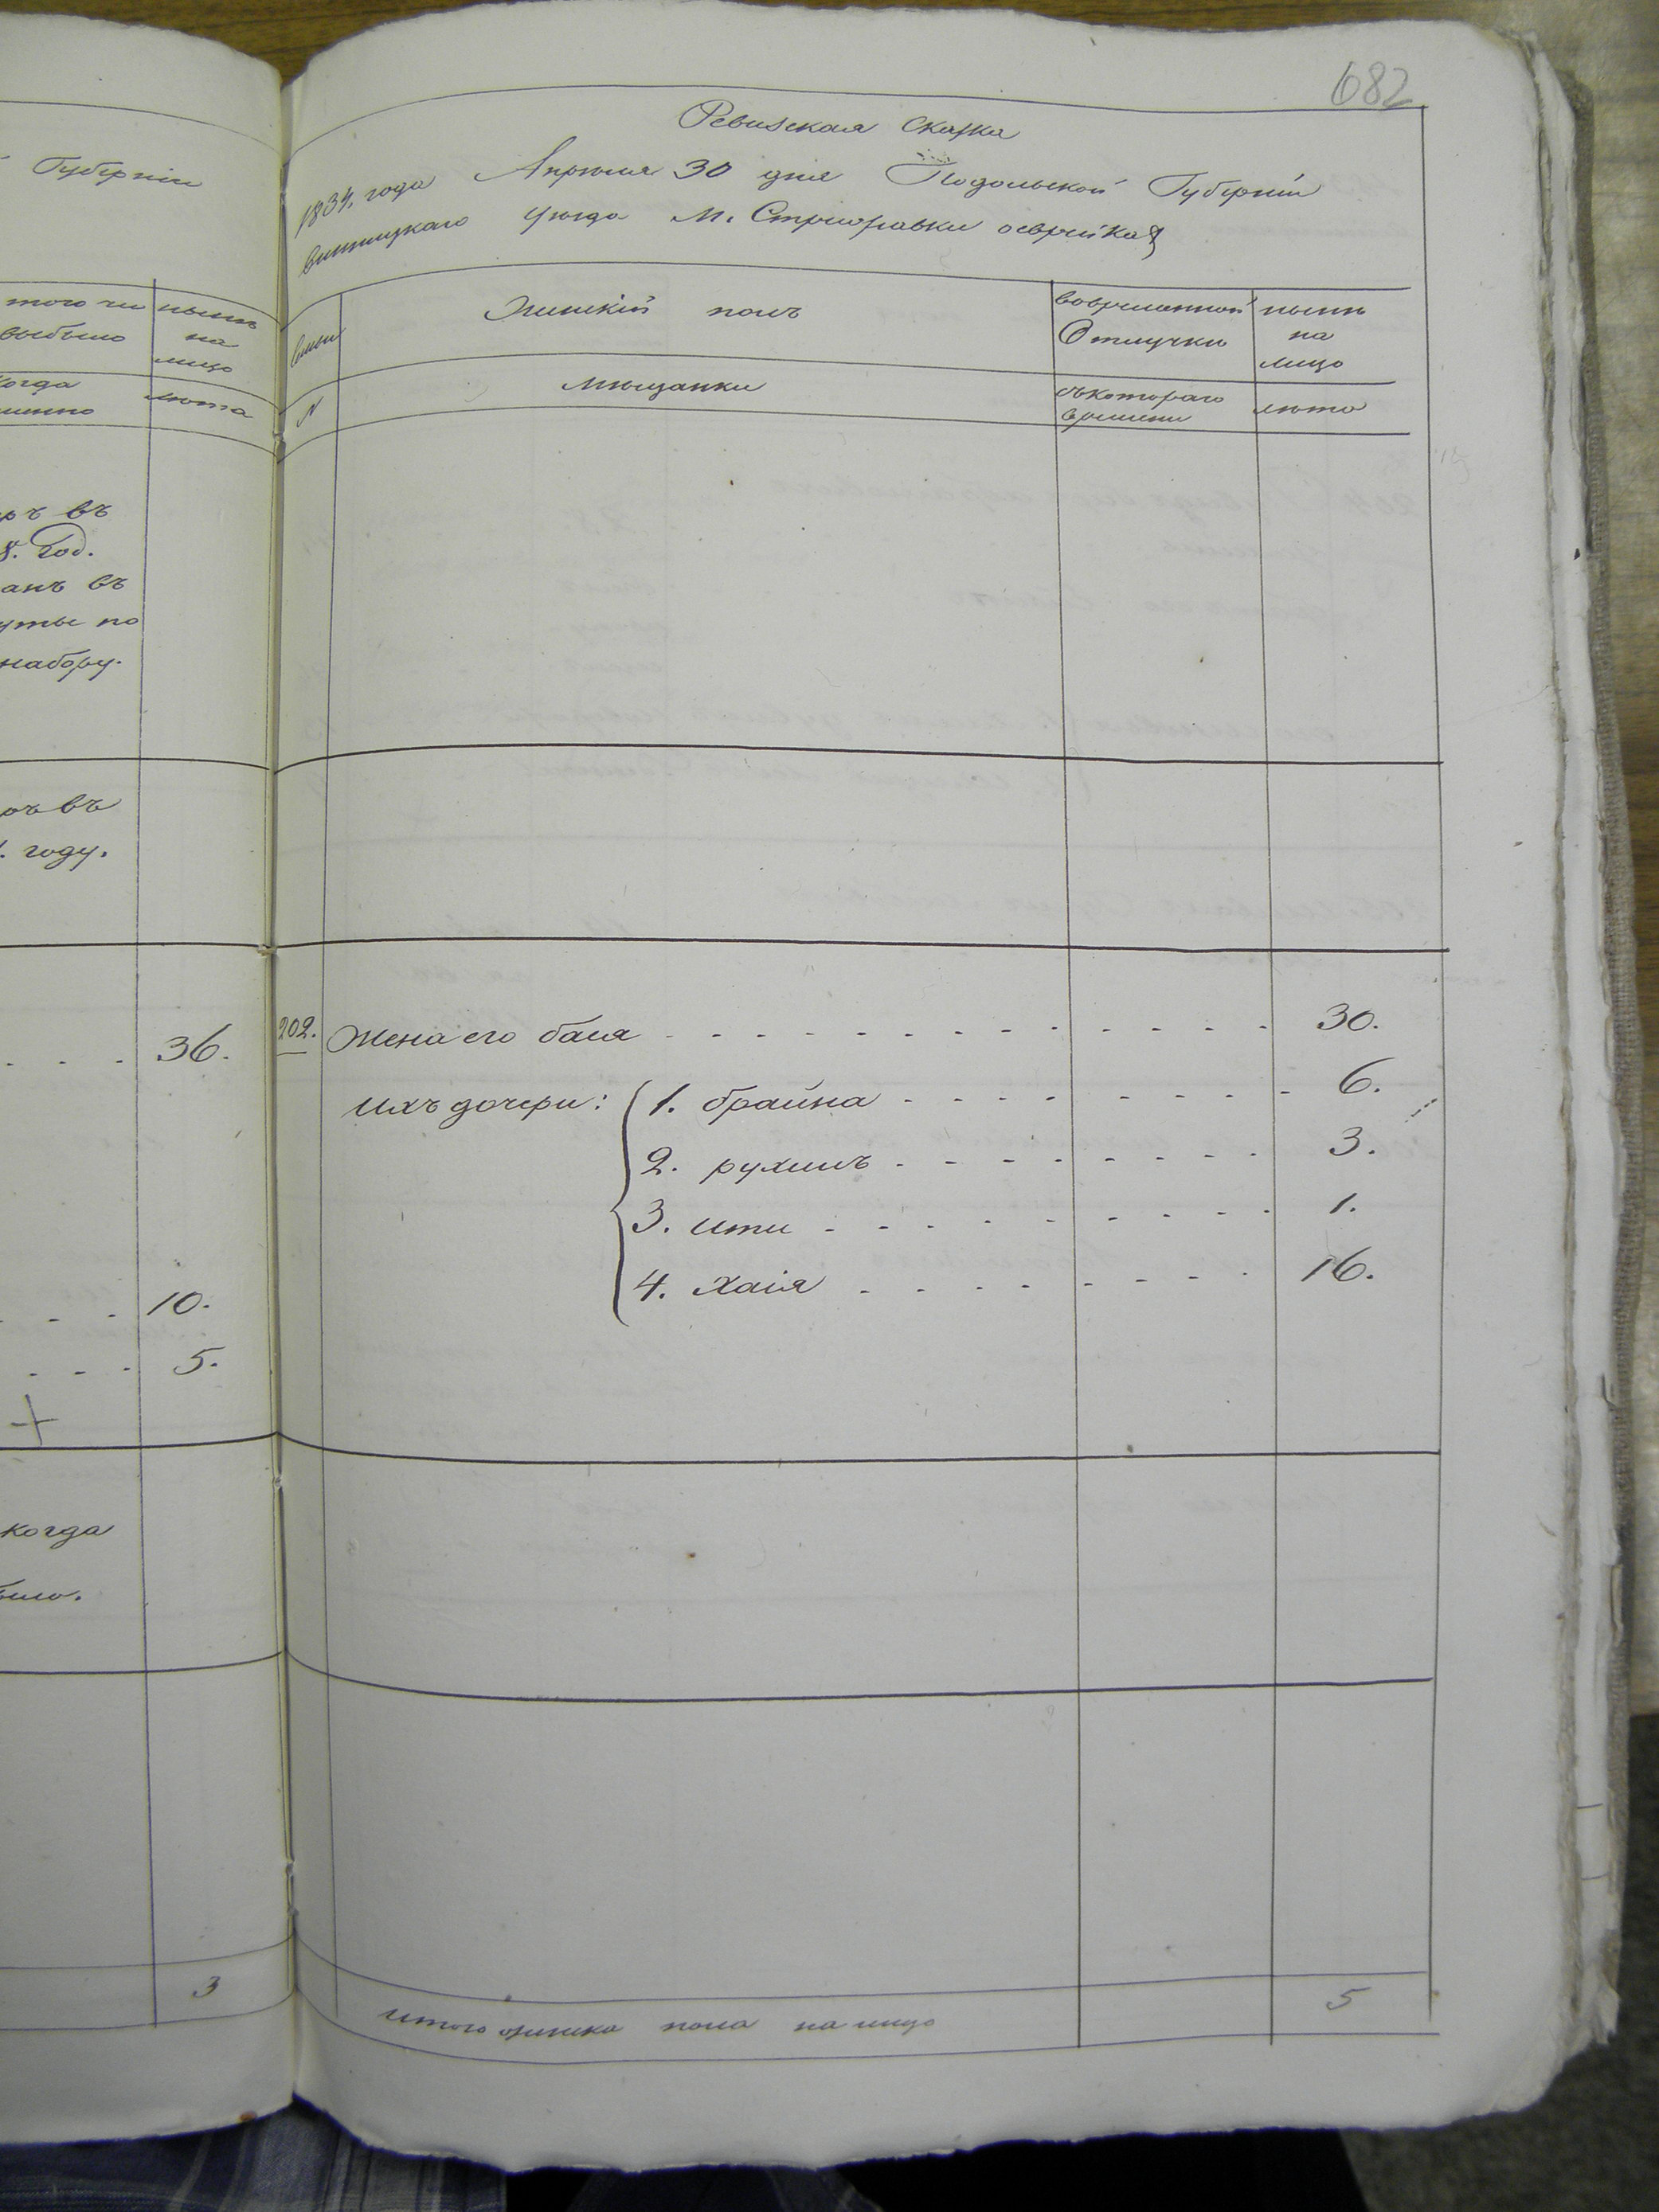 Губерніи
того чи
выбыло
когда
нынѣ
на
лицо
лѣта
въ
8. год.
въ
по
набору.
въ
году.
36.
10.
5.
+
когда
3
682
Ревизская Сказка
1834. года Апрѣля 30 дня Подольской Губерніи
Винницкаго уѣзда М. Стрижавки оеврейкахъ
семьи
Женскій полъ
вовременной
Отлучки
нынѣ
на
лицо
N
мѣщанки
съкотораго
времени
лѣта
202. Жена его бася - - - - - - - - - - - - 30.
Ихъ дочери: 1. брайна - - - - - - - - 6.
2. рухинъ - - - - - - - - 3.
3. ити - - - - - - - - - 1.
4. хаія - - - - - - - - 16.
итого женска пола на лицо 5